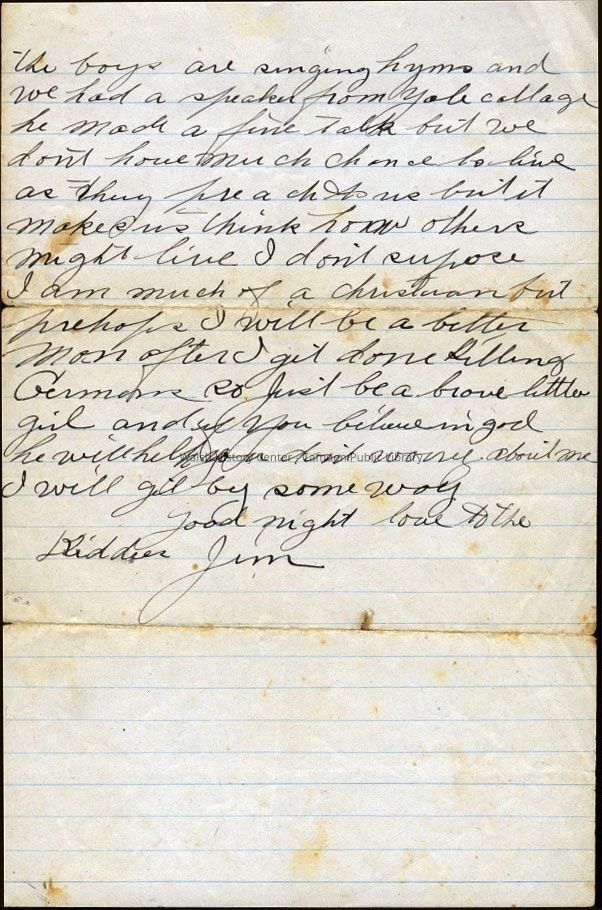 the boys are singing hyms and
we had a speaker from Yale collage
he made a fine talk but we
dont have much chance to live
as they preach to us but it
makes us think how others
might live I dont supose
I am much of a christian but
prehaps I will be a better
man after I git done killing
Germans so Just be a brave little
girl and if you believe in god
he will help you dont worry about me
I will git by some way
Good night love to the
Kiddies Jim